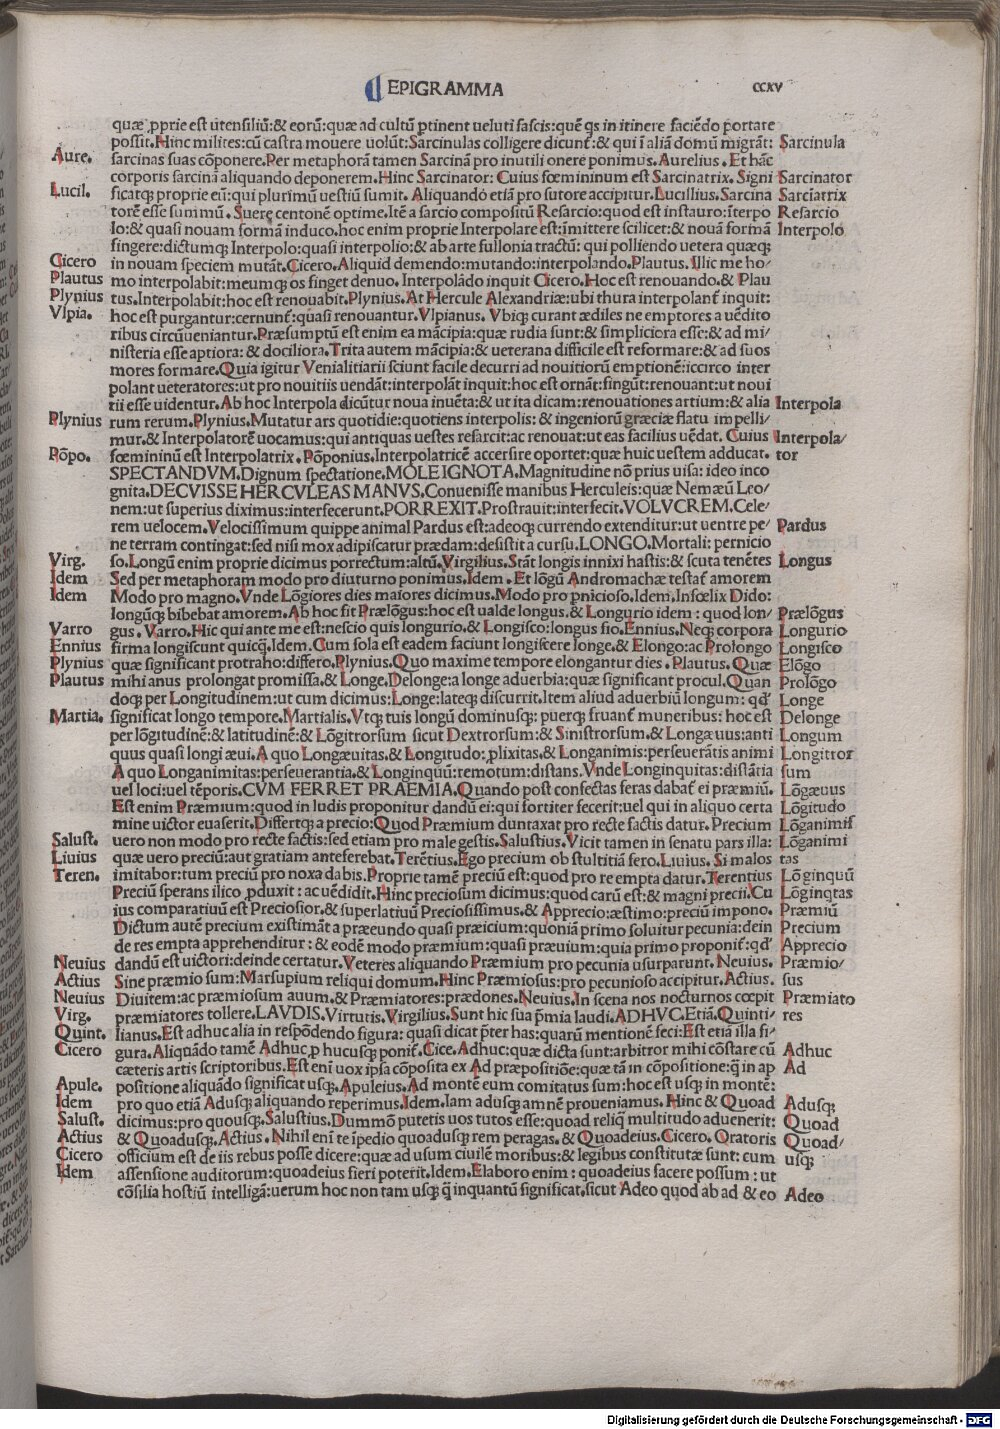 EPIGRAMMA
CCXV
quæ ꝓprie est utensiliũ:& eorũ:quæ ad cultũ ꝑtinent ueluti fascis:quẽ qs in itinere faciẽdo portare
possit.Hinc milites:cũ castra mouere uolũt:Sarcinulas colligere dicunt̃:& qui ĩ aliã domũ migrãt: Sarcinula
Aure. sarcinas suas cõponere.Per metaphorã tamen Sarcinã pro inutili onere ponimus.Aurelius.Et hãc
corporis sarcinã aliquando deponerem.Hinc Sarcinator: Cuius fœmininum est Sarcinatrix.Signi Sarcinator
Lucil. ficatqꝫ proprie eũ:qui plurimũ uestiũ sumit.Aliquando etiã pro sutore accipitur.Lucillius.Sarcina Sarciatrix
torẽ esse summũ.Suere centonẽ optime.Itẽ a sarcio compositũ Resarcio:quod est instauro:ĩterpo Resarcio
lo:& quasi nouam formã induco.hoc enim proprie Interpolare est:ĩmittere scilicet:& nouã formã Interpolo
fingere:dictumqꝫ Interpolo:quasi interpolio:& ab arte fullonia tractũ: qui polliendo uetera quæqꝫ
Cicero in nouam speciem mutãt.Cicero.Aliquid demendo:mutando:interpolando.Plautus.Illic me ho/
Plautus mo interpolabit:meumqꝫ os finget denuo.Interpolãdo inquit Cicero.Hoc est renouando.& Plau
Plynius tus.Interpolabit:hoc est renouabit.Plynius.At Hercule Alexandriæ:ubi thura interpolant̃ inquit:
Vlpia. hoc est purgantur:cernunt̃:quasi renouantur.Vlpianus.Vbiqꝫ curant ædiles ne emptores a uẽdito
ribus circũueniantur.Præsumptũ est enim ea mãcipia:quæ rudia sunt:& simpliciora esse:& ad mi/
nisteria esse aptiora:& dociliora.Trita autem mãcipia:& ueterana difficile est reformare:& ad suos
mores formare.Quia igitur Venialitiarii sciunt facile decurri ad nouitiorũ emptionẽ:iccirco inter
polant ueteratores:ut pro nouitiis uendãt:interpolãt inquit:hoc est ornãt:fingũt:renouant:ut noui
tii esse uidentur.Ab hoc Interpola dicũtur noua inuẽta:& ut ita dicam:renouationes artium:& alia Interpola
Plynius rum rerum.Plynius.Mutatur ars quotidie:quotiens interpolis:& ingeniorũ græciæ flatu impelli/
mur.& Interpolatorẽ uocamus:qui antiquas uestes resarcit:ac renouat:ut eas facilius uẽdat. Cuius Interpola/
Põpo. fœmininũ est Interpolatrix.Põponius.Interpolatricẽ accersire oportet:quæ huic uestem adducat. tor
SPECTANDVM.Dignum spectatione.MOLE IGNOTA.Magnitudine nõ prius uisa: ideo inco
gnita.DECVISSE HERCVLEAS MANVS.Conuenisse manibus Herculeis:quæ Nemæũ Leo/
nem:ut superius diximus:interfecerunt.PORREXIT.Prostrauit:interfecit.VOLVCREM.Cele/
rem uelocem.Velocissimum quippe animal Pardus est:adeoqꝫ currendo extenditur:ut uentre pe/ Pardus
ne terram contingat:sed nisi mox adipiscatur prædam:desistit a cursu.LONGO.Mortali: pernicio
Virg. so.Longũ enim proprie dicimus porrectum:altũ.Virgilius.Stãt longis innixi hastis:& scuta tenẽtes Longus
Idem Sed per metaphoram modo pro diuturno ponimus.Idem.Et lõgũ Andromachæ testat̃ amorem
Idem Modo pro magno.Vnde Lõgiores dies maiores dicimus.Modo pro ꝑnicioso.Idem.Infœlix Dido:
longũqꝫ bibebat amorem.Ab hoc fit Prælõgus:hoc est ualde longus.& Longurio idem: quod lon/ Prælõgus
Varro gus.Varro.Hic qui ante me est:nescio quis longurio.& Longisco:longus fio.Ennius.Neqꝫ corpora Longurio
Ennius firma longiscunt quicqꝫ.Idem.Cum sola est eadem faciunt longiscere longe.& Elongo:ac Prolongo Longisco
Plynius quæ significant protraho:differo.Plynius.Quo maxime tempore elongantur dies.Plautus.Quæ Elõgo
Plautus mihi anus prolongat promissa.& Longe.Delonge:a longe aduerbia:quæ significant procul.Quan Prolõgo
doqꝫ per Longitudinem:ut cum dicimus:Longe:lateqꝫ discurrit.Item aliud aduerbiũ longum: qđ Longe
Martia. significat longo tempore.Martialis.Vtqꝫ tuis longũ dominusqꝫ: puerqꝫ fruant̃ muneribus: hoc est Delonge
per lõgitudinẽ:& latitudinẽ:& Lõgitrorsum sicut Dextrorsum:& Sinistrorsum.& Longæuus:anti Longum
quus quasi longi æui.A quo Longæuitas.& Longitudo:ꝓlixitas.& Longanimis:perseuerãtis animi Longittor
A quo Longanimitas:perseuerantia.& Longinquũ:remotum:distans.Vnde Longinquitas:distãtia sum
uel loci:uel tẽporis.CVM FERRET PRAEMIA.Quando post confectas feras dabat̃ ei præmiũ. Lõgæuus
Est enim Præmium:quod in ludis proponitur dandũ ei:qui fortiter fecerit:uel qui in aliquo certa Lõgitudo
mine uictor euaserit.Differtqꝫ a precio:Quod Præmium duntaxat pro recte factis datur.Precium Lõganimis
Salust. uero non modo pro recte factis:sed etiam pro male gestis.Salustius.Vicit tamen in senatu pars illa: Lõganimi
Liuius quæ uero preciũ:aut gratiam anteferebat.Terẽtius.Ego precium ob stultitiã fero.Liuius.Si malos tas
Teren. imitabor:tum preciũ pro noxa dabis.Proprie tamẽ preciũ est:quod pro re empta datur.Terentius Lõginquũ
Preciũ sperans ilico ꝓduxit:ac uẽdidit.Hinc preciosum dicimus:quod carũ est:& magni precii.Cu Lõginqtas
ius comparatiuũ est Preciosior.& superlatiuũ Preciosissimus.& Apprecio:æstimo:preciũ impono. Præmiũ
Dictum autẽ precium existimãt a præeundo quasi præicium:quoniã primo soluitur pecunia:dein Precium
de res empta apprehenditur:& eodẽ modo præmium:quasi præuium:quia primo proponit̃:qđ Apprecio
Neuius dandũ est uictori:deinde certatur.Veteres aliquando Præmium pro pecunia usurparunt.Neuius. Præmio/
Actius Sine præmio sum:Marsupium reliqui domum.Hinc Præmiosus:pro pecunioso accipitur.Actius. sus
Neuius Diuitem:ac præmiosum auum.& Præmiatores:prædones.Neuius.In scena nos nocturnos cœpit Præmiato
Virg. præmiatores tollere.LAVDIS.Virtutis.Virgilius.Sunt hic sua ꝑmia laudi.ADHVC.Etiã.Quinti/ res
Quint. lianus.Est adhuc alia in respõdendo figura: quasi dicat ꝑter has:quarũ mentionẽ feci:Est etiã illa fi/
Cicero gura.Aliquãdo tamẽ Adhuc ꝓ hucusqꝫ ponit̃.Cice.Adhuc:quæ dicta sunt:arbitror mihi cõstare cũ Adhuc
cæteris artis scriptoribus.Est enĩ uox ipsa cõposita ex Ad præpositiõe:quæ tã in cõpositione:ꝗ̃ in ap Ad
Apule. positione aliquãdo significat usqꝫ.Apuleius.Ad montẽ eum comitatus sum:hoc est usqꝫ in montẽ:
Idem pro quo etiã Adusqꝫ aliquando reperimus.Idem.Iam adusqꝫ amnẽ proueniamus.Hinc & Quoad Adusqꝫ
Salust. dicimus:pro quousqꝫ.Salustius.Dummõ putetis uos tutos esse:quoad reliqꝫ multitudo aduenerit: Quoad
Actius & Quoadusqꝫ.Actius.Nihil enĩ te ĩpedio quoadusqꝫ rem peragas.& Quoadeius.Cicero.Oratoris Quoad/
Cicero officium est de iis rebus posse dicere:quæ ad usum ciuilẽ moribus:& legibus constitutæ sunt: cum usqꝫ
Idem assensione auditorum:quoadeius fieri poterit.Idem.Elaboro enim: quoadeius facere possum:ut
cõsilia hostiũ intelligã:uerum hoc non tam usqꝫ ꝗ̃ inquantũ significat.sicut Adeo quod ab ad & eo Adeo
Digitalisierung gefördert durch die Deutsche Forschungsgemeinschaft - DFG